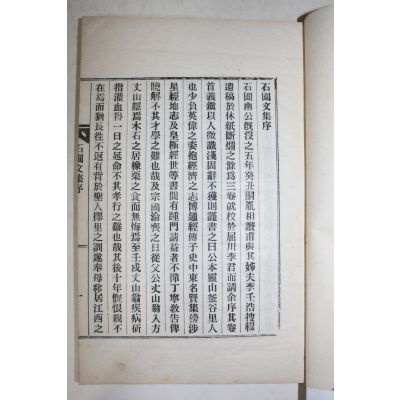 石圃文集序
石圃南公旣沒之五年癸丑嗣胤相瓚甫與其姊夫李壬浩搜緝
遺稿於休紙斷爛之餘爲三卷就校於屈川李君而請余序其卷
首義鎭以人微識淺固辭不獲則謹書之曰公本靈山釜谷里人
也少負英偉之姿抱經濟之志博通經傳子史中東名賢集傍涉
星經地志及皇極經世等書閒有踵門請益者不憚丁寧敎告俾
曉解不其才學之難也哉及宗國淪喪之日從父公丈山翁入方
丈山隱焉木石之居橡栗之食而無悔焉至壬戌丈山翁疾病斫
指灌血得一日之延命不其孝行之難也哉其後十年慨恨親不
在焉而猶長往不返有背於聖人擇里之訓遂奉母移居江西之
石圃文集序
一